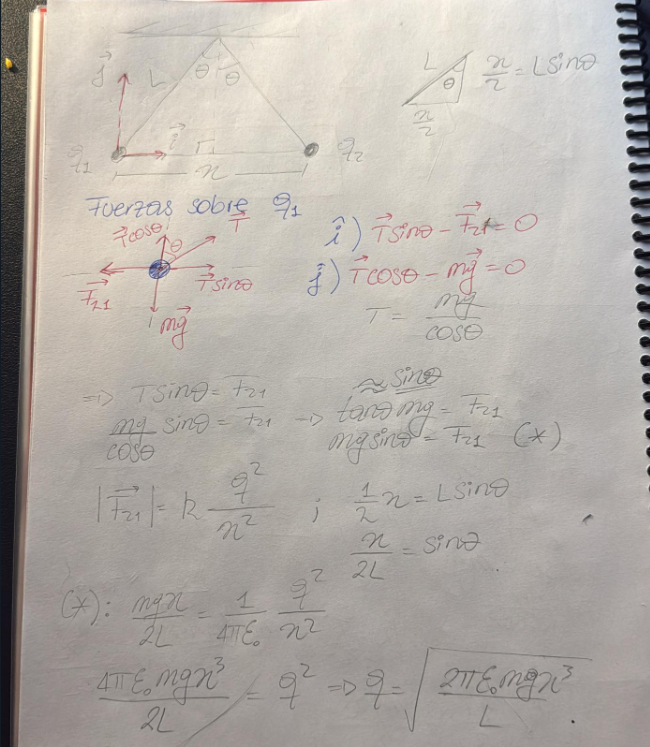 θ θ
L
L θ n/2 = Lsinθ
n/2
j⃗
i⃗
q₁ n q₂
Fuerzas sobre q₁
T⃗cosθ θ T⃗
F⃗₂₁ T⃗sinθ
mg⃗
î) T⃗sinθ - F⃗₂₁ = 0
ĵ) T⃗cosθ - mg⃗ = 0
T = mg/cosθ
=> Tsinθ = F₂₁
mg/cosθ sinθ = F₂₁ -> tanθ mg = F₂₁
≈ sinθ
mgsinθ = F₂₁ (*)
|F⃗₂₁| = k q²/n² ; 1/2 n = Lsinθ
n/2L = sinθ
(*): mgn/2L = 1/4πε₀ q²/n²
4πε₀mgn³/2L = q² => q = √(2πε₀mgn³/L)